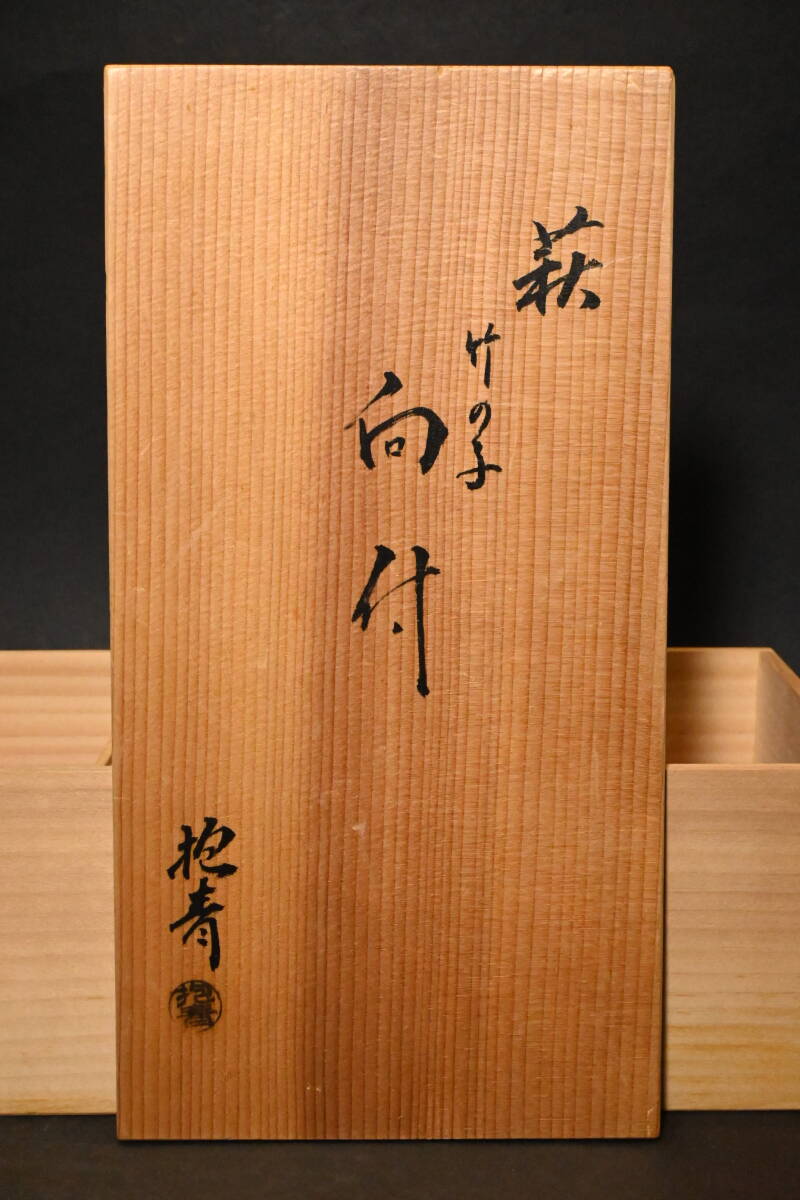 萩
竹の子
向付
抱青
抱青